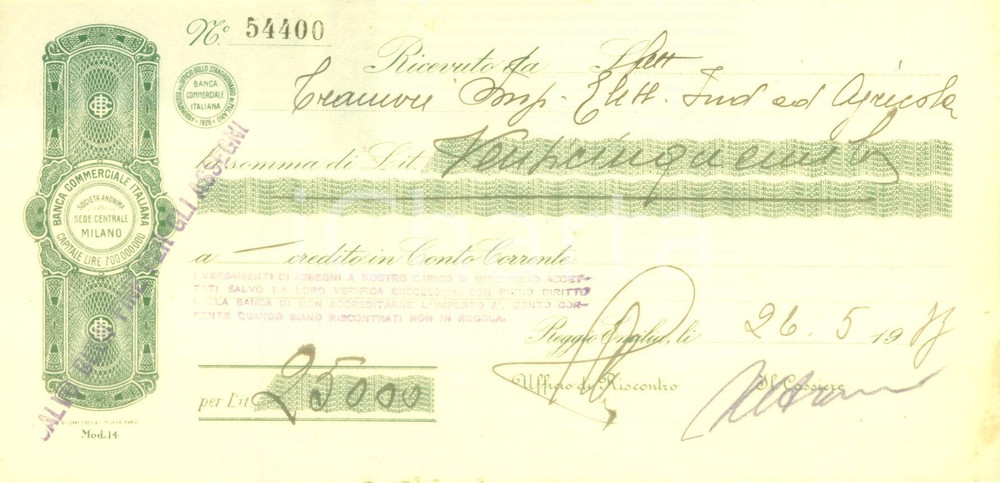 Nº 54400
Ricevuto da
BANCA COMMERCIALE ITALIANA
1928
Imp. Elett. Ind ed Agricole
la somma di Lit. Venticinquemila
BANCA COMMERCIALE ITALIANA
SOCIETÀ ANONIMA
SEDE CENTRALE
MILANO
CAPITALE LIRE 700.000.000
SALVO BUON FINE PER GLI ASSEGNI
a — credito in Conto Corrente
I VERSAMENTI DI ASSEGNI A NOSTRO CARICO SI INTENDONO ACCET-
TATI SALVO LA LORO VERIFICA SUCCESSIVA, CON PIENO DIRITTO
DELLA BANCA DI NON ACCREDITARNE L'IMPORTO AL CONTO COR-
RENTE QUANDO SIANO RISCONTRATI NON IN REGOLA.
Reggio Emilia, li 26.5 19
Ufficio di Riscontro
Il Cassiere
per Lit. 25000
Mod. 14